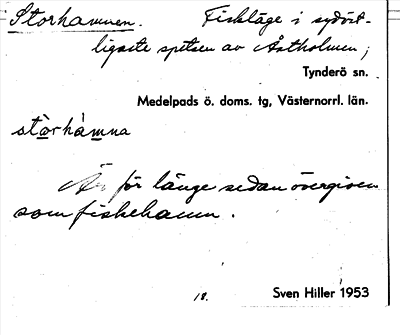 Storhamnen. Fiskläge i sydöst-
ligaste spetsen av Åstholmen;
Tynderö sn.
Medelpads ö. doms. tg, Västernorrl. län.
stòrhámna
Är för länge sedan övergiven
som fiskehamn.
18. Sven Hiller 1953